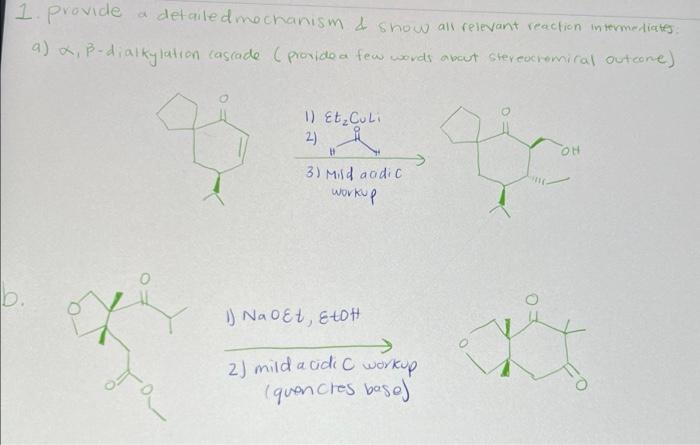 1. provide a detailed mechanism & show all relevant reaction intermediates:
a) α, β-dialkylation cascade (provide a few words about stereochemical outcome)
O
1) Et₂CuLi
2) O
H H
3) Mild acidic
workup
O
OH
b.
O
O
O
O
1) NaOEt, EtOH
2) mild acidic workup
(quenches base)
O
O
O